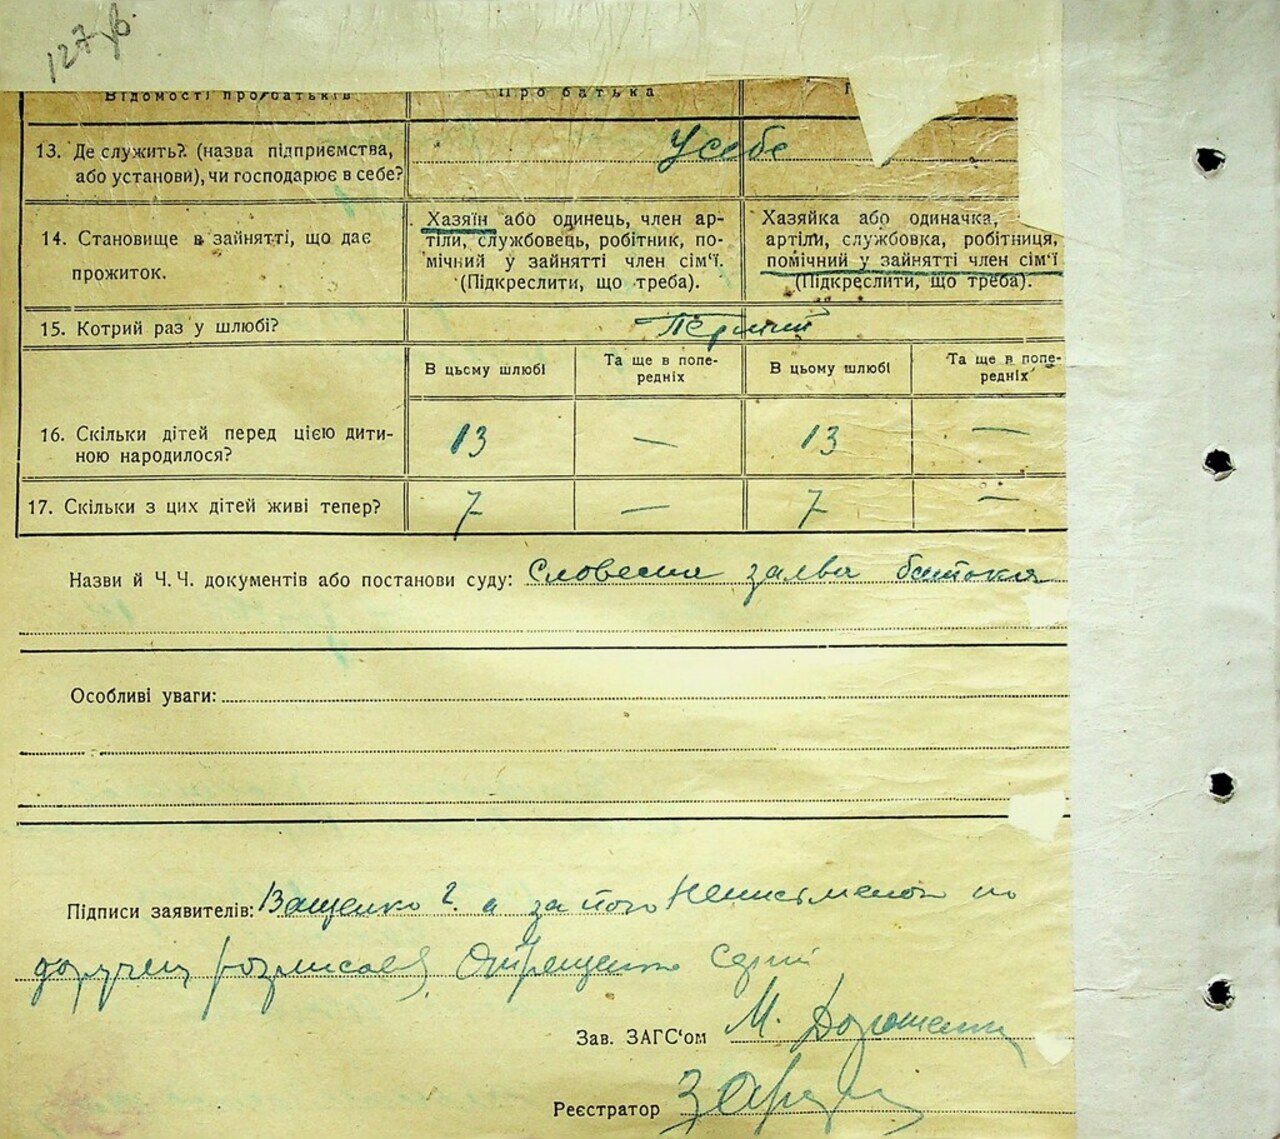 127 зв.
Відомості про батьків Про батька
13. Де служить? (назва підприємства, або установи), чи господарює в себе?
У себе
14. Становище в зайнятті, що дає прожиток.
Хазяїн або одинець, член артіли, службовець, робітник, помічний у зайнятті член сім'ї. (Підкреслити, що треба).
Хазяйка або одиначка, артіли, службовка, робітниця, помічний у зайнятті член сім'ї (Підкреслити, що треба).
15. Котрий раз у шлюбі? Перший
В цьому шлюбі Та ще в попередніх В цьому шлюбі Та ще в попередніх
16. Скільки дітей перед цією дитиною народилося? 13 — 13 —
17. Скільки з цих дітей живі тепер? 7 — 7 —
Назви й Ч. Ч. документів або постанови суду: Словесна заява батька
Особливі уваги:
Підписи заявителів: Ващенко Г. а за його неписьменого по
доручен розписався Сергій
Зав. ЗАГС'ом М. Дорошенко
Реєстратор